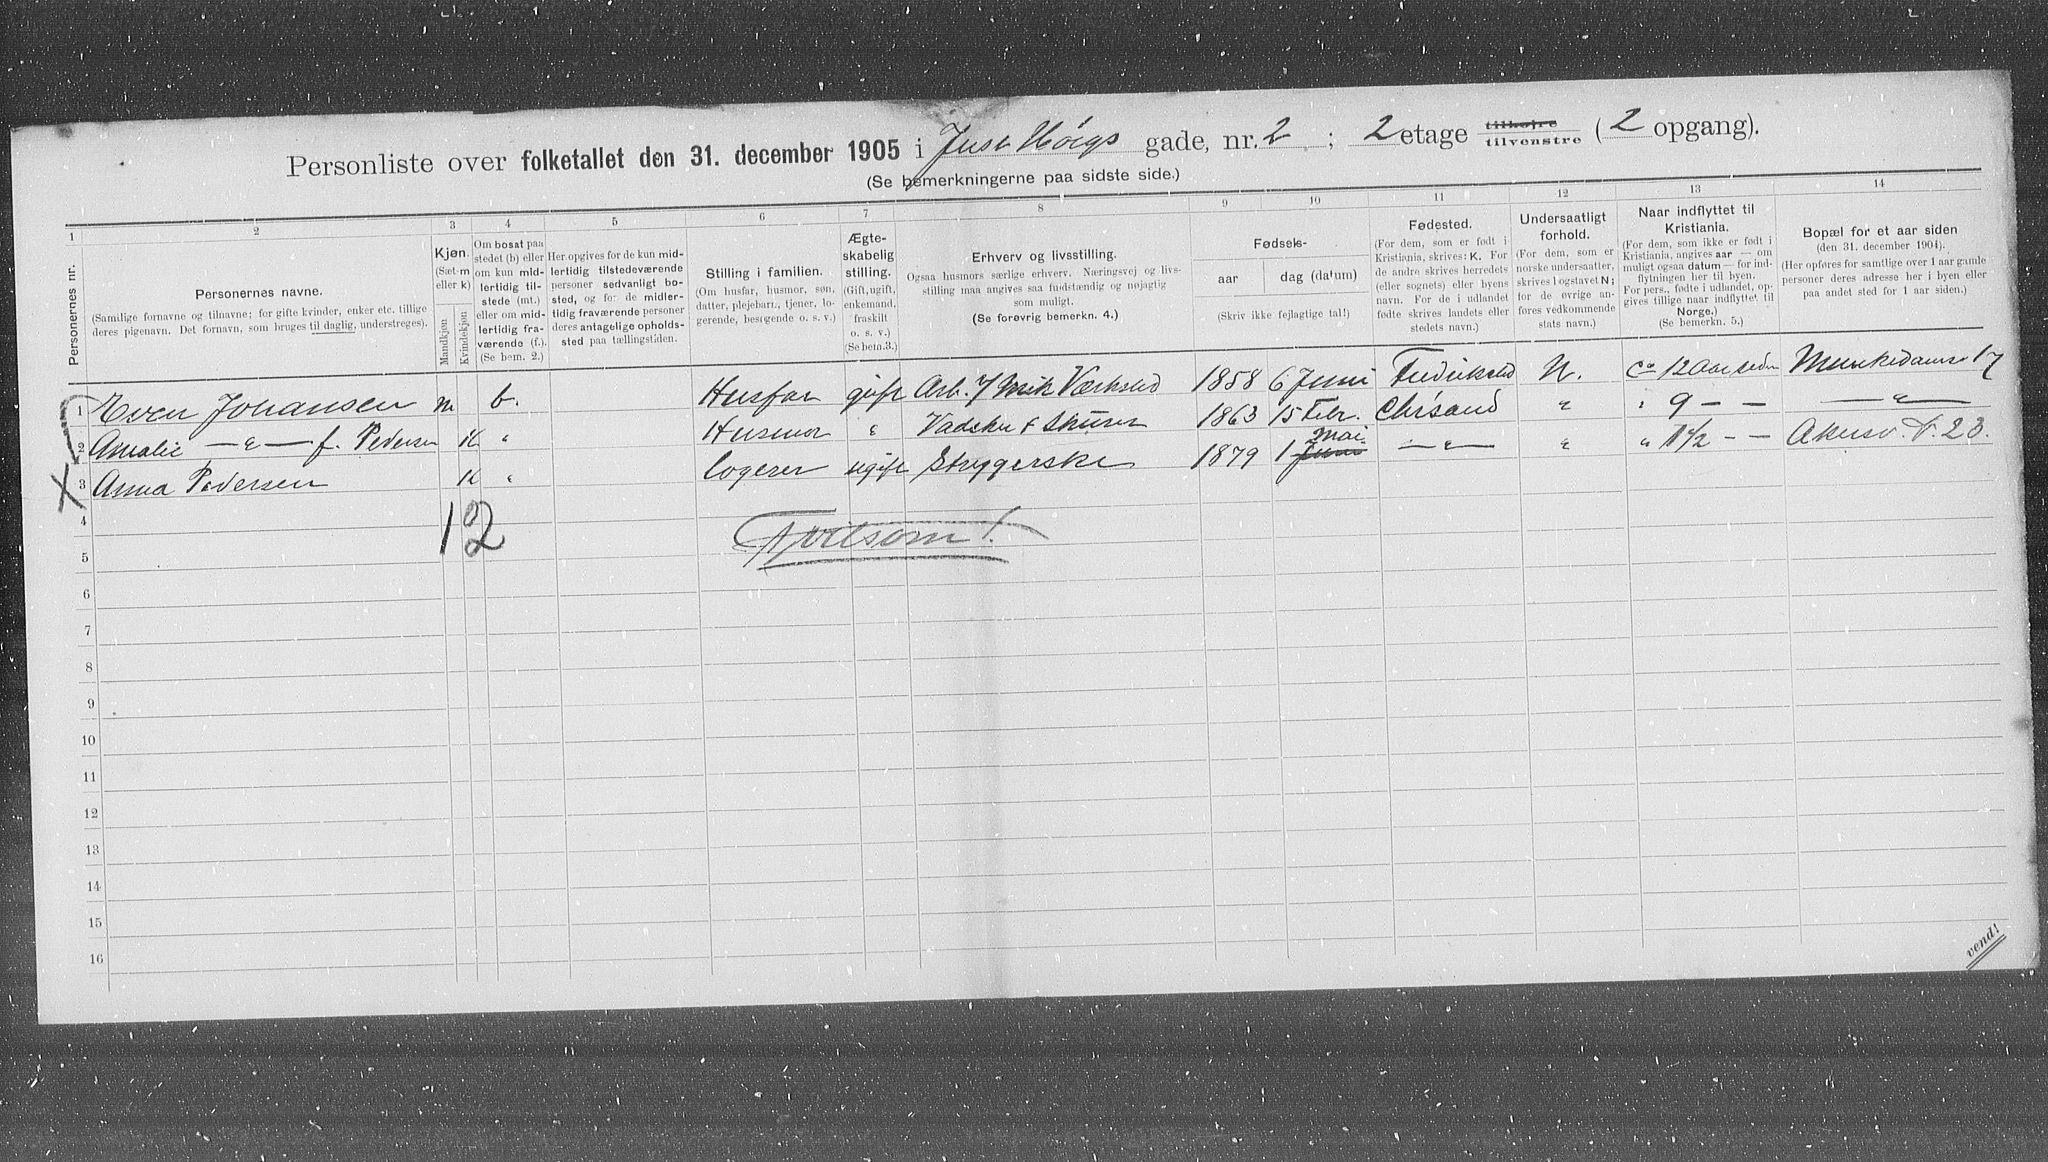 Personliste over folketallet den 31. december 1905 i Just Høigs gade, nr. 2 ; 2 etage tilhøjre tilvenstre (2 opgang).
(Se bemerkningerne paa sidste side.)
1 2 3 4 5 6 7 8 9 10 11 12 13 14
Personernes nr.
Personernes navne.
(Samtlige fornavne og tilnavne; for gifte kvinder, enker etc. tillige deres pigenavn. Det fornavn, som bruges til daglig, understreges).
Kjøn.
(Sæt m eller k)
Mandkjøn
Kvindekjøn
Om bosat paa stedet (b) eller om kun midlertidig tilstede (mt.) eller om midlertidig fraværende (f.) (Se bem. 2.)
Her opgives for de kun midlertidig tilstedeværende personer sedvanligt bosted, og for de midlertidig fraværende personer deres antagelige opholdssted paa tællingstiden.
Stilling i familien.
(Om husfar, husmor, søn, datter, plejebarn, tjener, logerende, besøgende o. s. v.)
Ægteskabelig stilling.
(Gift, ugift, enkemand, fraskilt o. s. v.)
(Se bem. 3.)
Erhverv og livsstilling.
Ogsaa husmors særlige erhverv. Næringsvej og livsstilling maa angives saa fuldstændig og nøjagtig som muligt.
(Se forøvrig bemerkn. 4.)
Fødsels-
aar
dag (datum)
(Skriv ikke fejlagtige tal!)
Fødested.
(For dem, som er født i Kristiania, skrives: K. For de andre skrives herredets (eller sognets) eller byens navn. For de i udlandet fødte skrives landets eller stedets navn.)
Undersaatligt forhold.
(For dem, som er norske undersaatter, skrives i ogstavet N; for de øvrige anføres vedkommende stats navn.)
Naar indflyttet til Kristiania.
(For dem, som ikke er født i Kristiania, angives aar — om muligt ogsaa datum — for indflytningen her til byen. For pers., fødte i udlandet, opgives tillige naar indflyttet til Norge.)
(Se bemerkn. 5.)
Bopæl for et aar siden
(den 31. december 1904).
(Her opføres for samtlige over 1 aar gamle personer deres adresse her i byen eller paa andet sted for 1 aar siden.)
1 Even Johansen m b. Husfar gift Arb. Mek Værksted 1858 6 Juni Fredrikstd N. ca 12 Aar siden Munkedamsv 17
2 Amalie — " — f. Pedersen K " Husmor " Vadsker & Skurer 1863 15 Febr. Chrsand " " 9 — — — " —
3 Anna Pedersen K " Logerer ugift Strygerske 1879 1 Juni Mai — " — " " 1½ — — Akersv. 23.
X
4
1 2
Tvilsom!
5
6
7
8
9
10
11
12
13
14
15
16
vend!